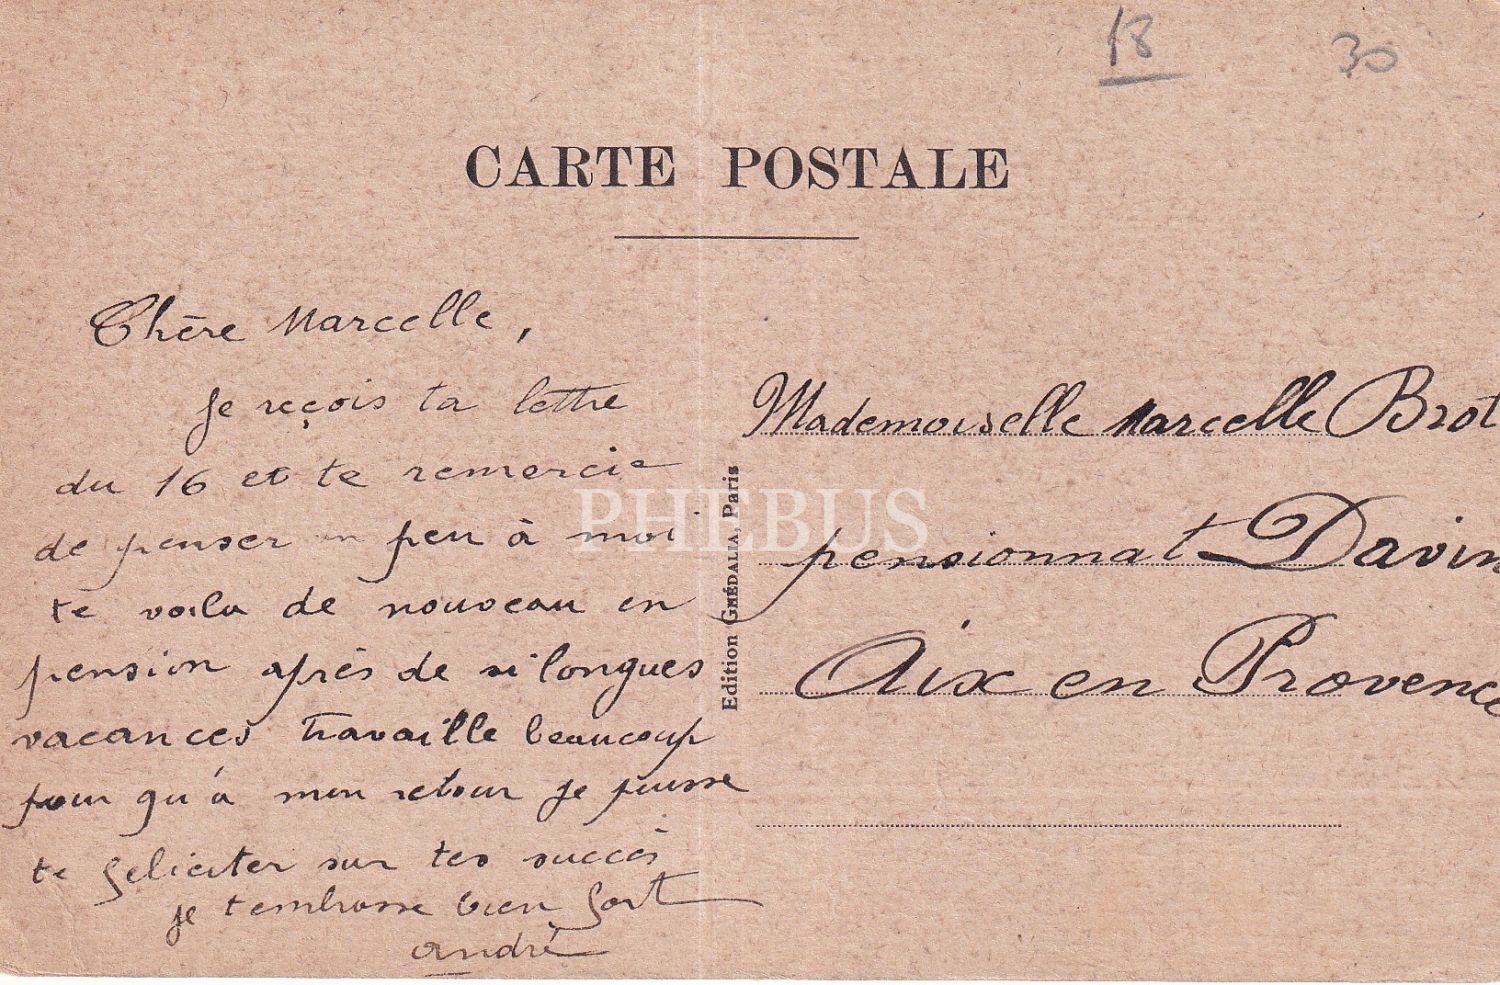 18
30
CARTE POSTALE
Chère Marcelle,
je reçois ta lettre
du 16 et te remercie
de penser un peu à moi
te voilà de nouveau en
pension après de si longues
vacances travaille beaucoup
pour qu'à mon retour je puisse
te feliciter sur tes succès
je t'embrasse bien fort
andré
Edition GHÉDALIA, Paris
PHEBUS
Mademoiselle Marcelle Brot
pensionnat Davin
Aix en Provence